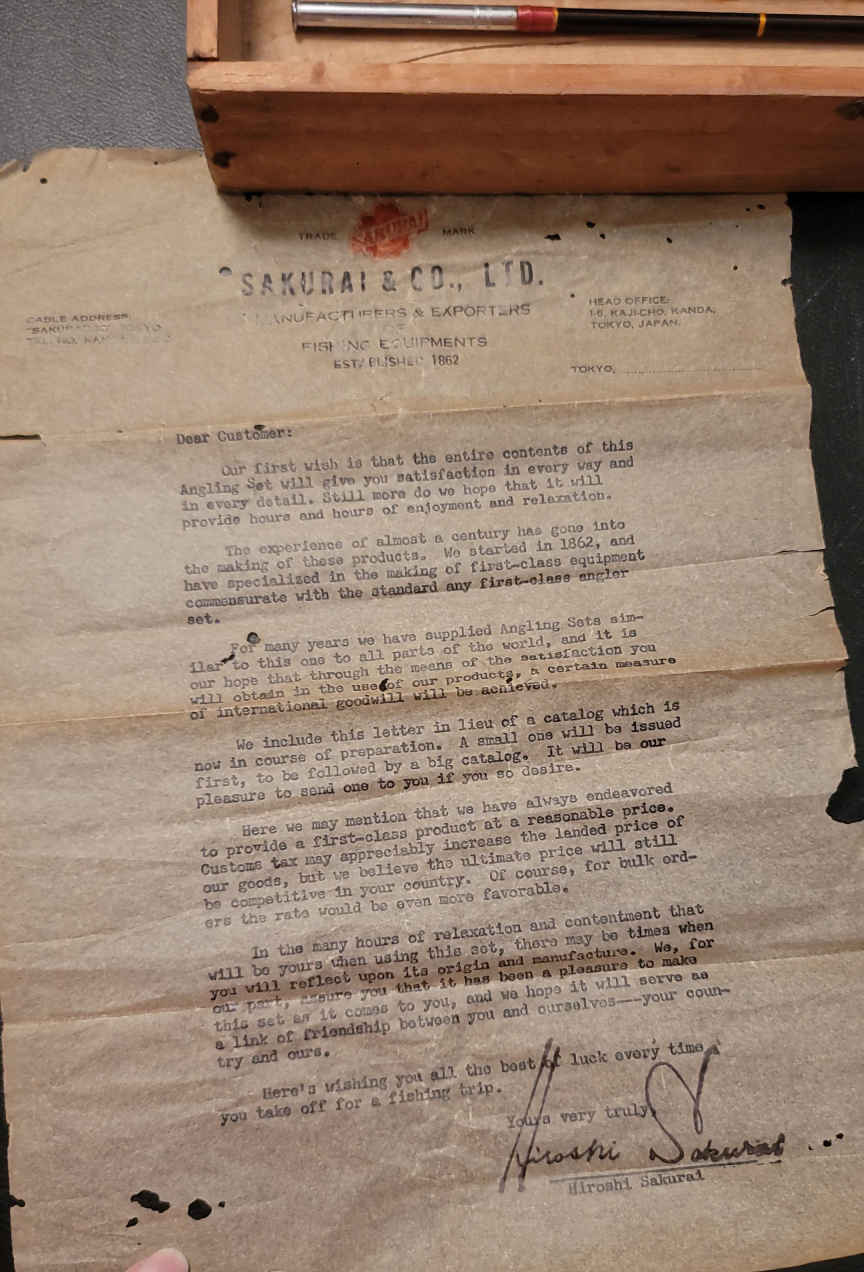 TRADE SAKURAI MARK
SAKURAI & CO., LTD.
MANUFACTURERS & EXPORTERS
OF
FISHING EQUIPMENTS
ESTABLISHED 1862
CABLE ADDRESS:
HEAD OFFICE:
1-6, KAJI-CHO, KANDA,
TOKYO, JAPAN.
TOKYO,
Dear Customer:
Our first wish is that the entire contents of this
Angling Set will give you satisfaction in every way and
in every detail. Still more do we hope that it will
provide hours and hours of enjoyment and relaxation.
The experience of almost a century has gone into
the making of these products. We started in 1862, and
have specialized in the making of first-class equipment
commensurate with the standard any first-class angler
set.
For many years we have supplied Angling Sets sim-
ilar to this one to all parts of the world, and it is
our hope that through the means of the satisfaction you
will obtain in the use of our products, a certain measure
of international goodwill will be achieved.
We include this letter in lieu of a catalog which is
now in course of preparation. A small one will be issued
first, to be followed by a big catalog. It will be our
pleasure to send one to you if you so desire.
Here we may mention that we have always endeavored
to provide a first-class product at a reasonable price.
Customs tax may appreciably increase the landed price of
our goods, but we believe the ultimate price will still
be competitive in your country. Of course, for bulk ord-
ers the rate would be even more favorable.
In the many hours of relaxation and contentment that
will be yours when using this set, there may be times when
you will reflect upon its origin and manufacture. We, for
our part, assure you that it has been a pleasure to make
this set as it comes to you, and we hope it will serve as
a link of friendship between you and ourselves---your coun-
try and ours.
Here's wishing you all the best of luck every time
you take off for a fishing trip.
Yours very truly,
Hiroshi Sakurai
Hiroshi Sakurai